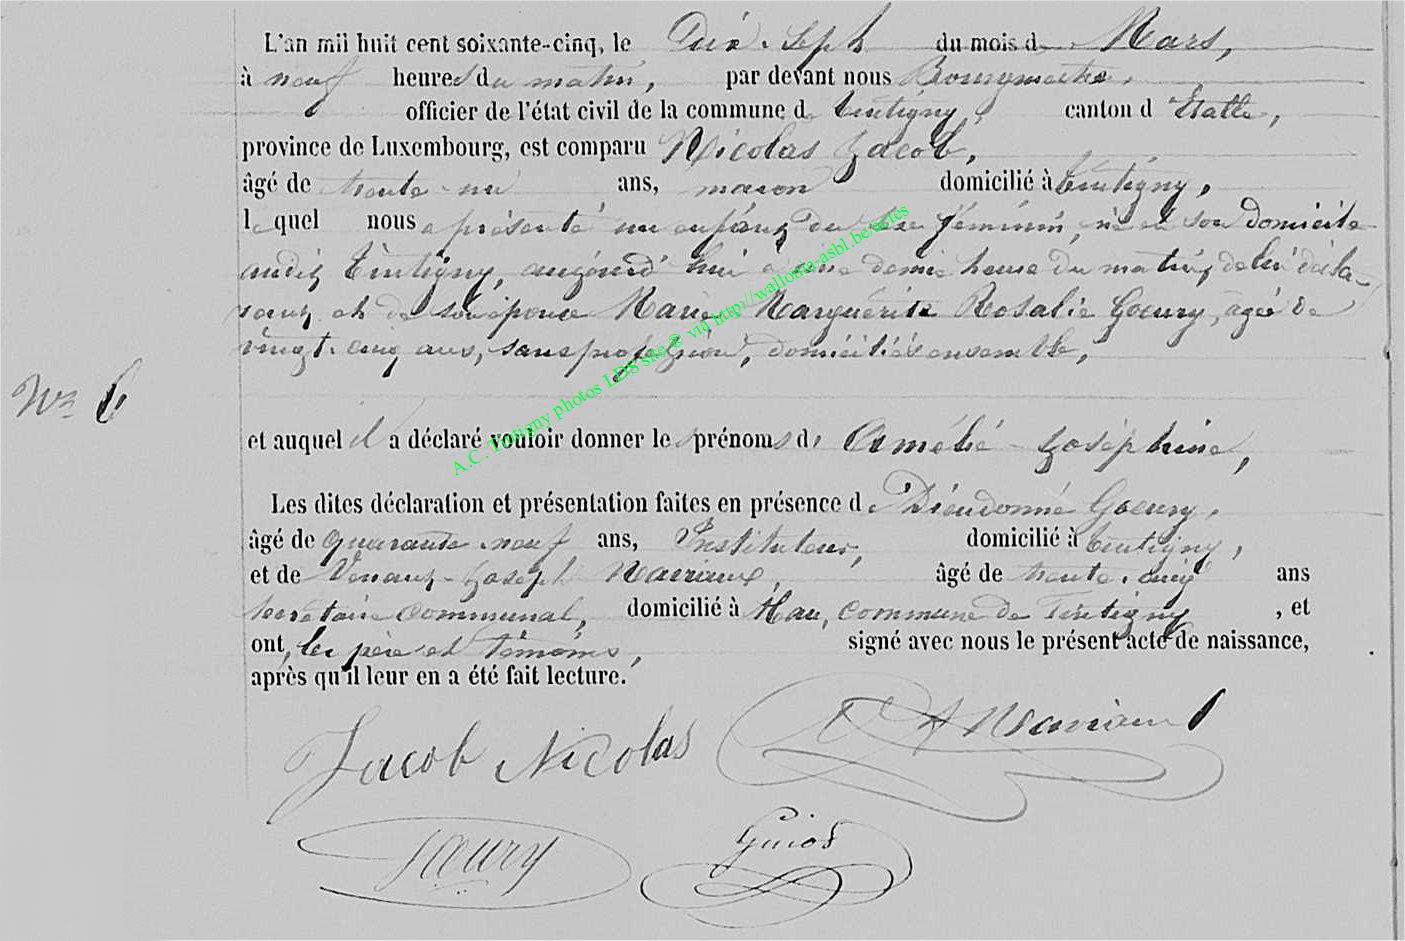 L'an mil huit cent soixante-cinq, le Dix-Sept du mois de Mars,
à neuf heures du matin, par devant nous Bourgmestre,
officier de l'état civil de la commune de Tintigny, canton d'Etalle,
province de Luxembourg, est comparu Nicolas Jacob,
âgé de trente-un ans, maçon domicilié à Tintigny,
lequel nous a présenté un enfant du sexe féminin, né en son domicile
audit Tintigny, aujourd'hui à une demie heure du matin, de lui décla-
rant, et de son épouse Marie Marguérite Rosalie Goeury, agée de
vingt-cinq ans, sans profession, domiciliés ensemble,
N° 6
et auquel il a déclaré vouloir donner les prénoms de Amélie Joséphine,
Les dites déclaration et présentation faites en présence de Dieudonné Goeury,
âgé de quarante-neuf ans, Instituteur, domicilié à Tintigny,
et de Joseph âgé de trente-cinq ans
secrétaire communal, domicilié à Han, commune de Tintigny, et
ont, les père et témoins, signé avec nous le présent acte de naissance,
après qu'il leur en a été fait lecture.
Jacob Nicolas
Goeury Guiot
A.C. Tintigny photos LDS site © via http://wallonia-asbl.be/actes